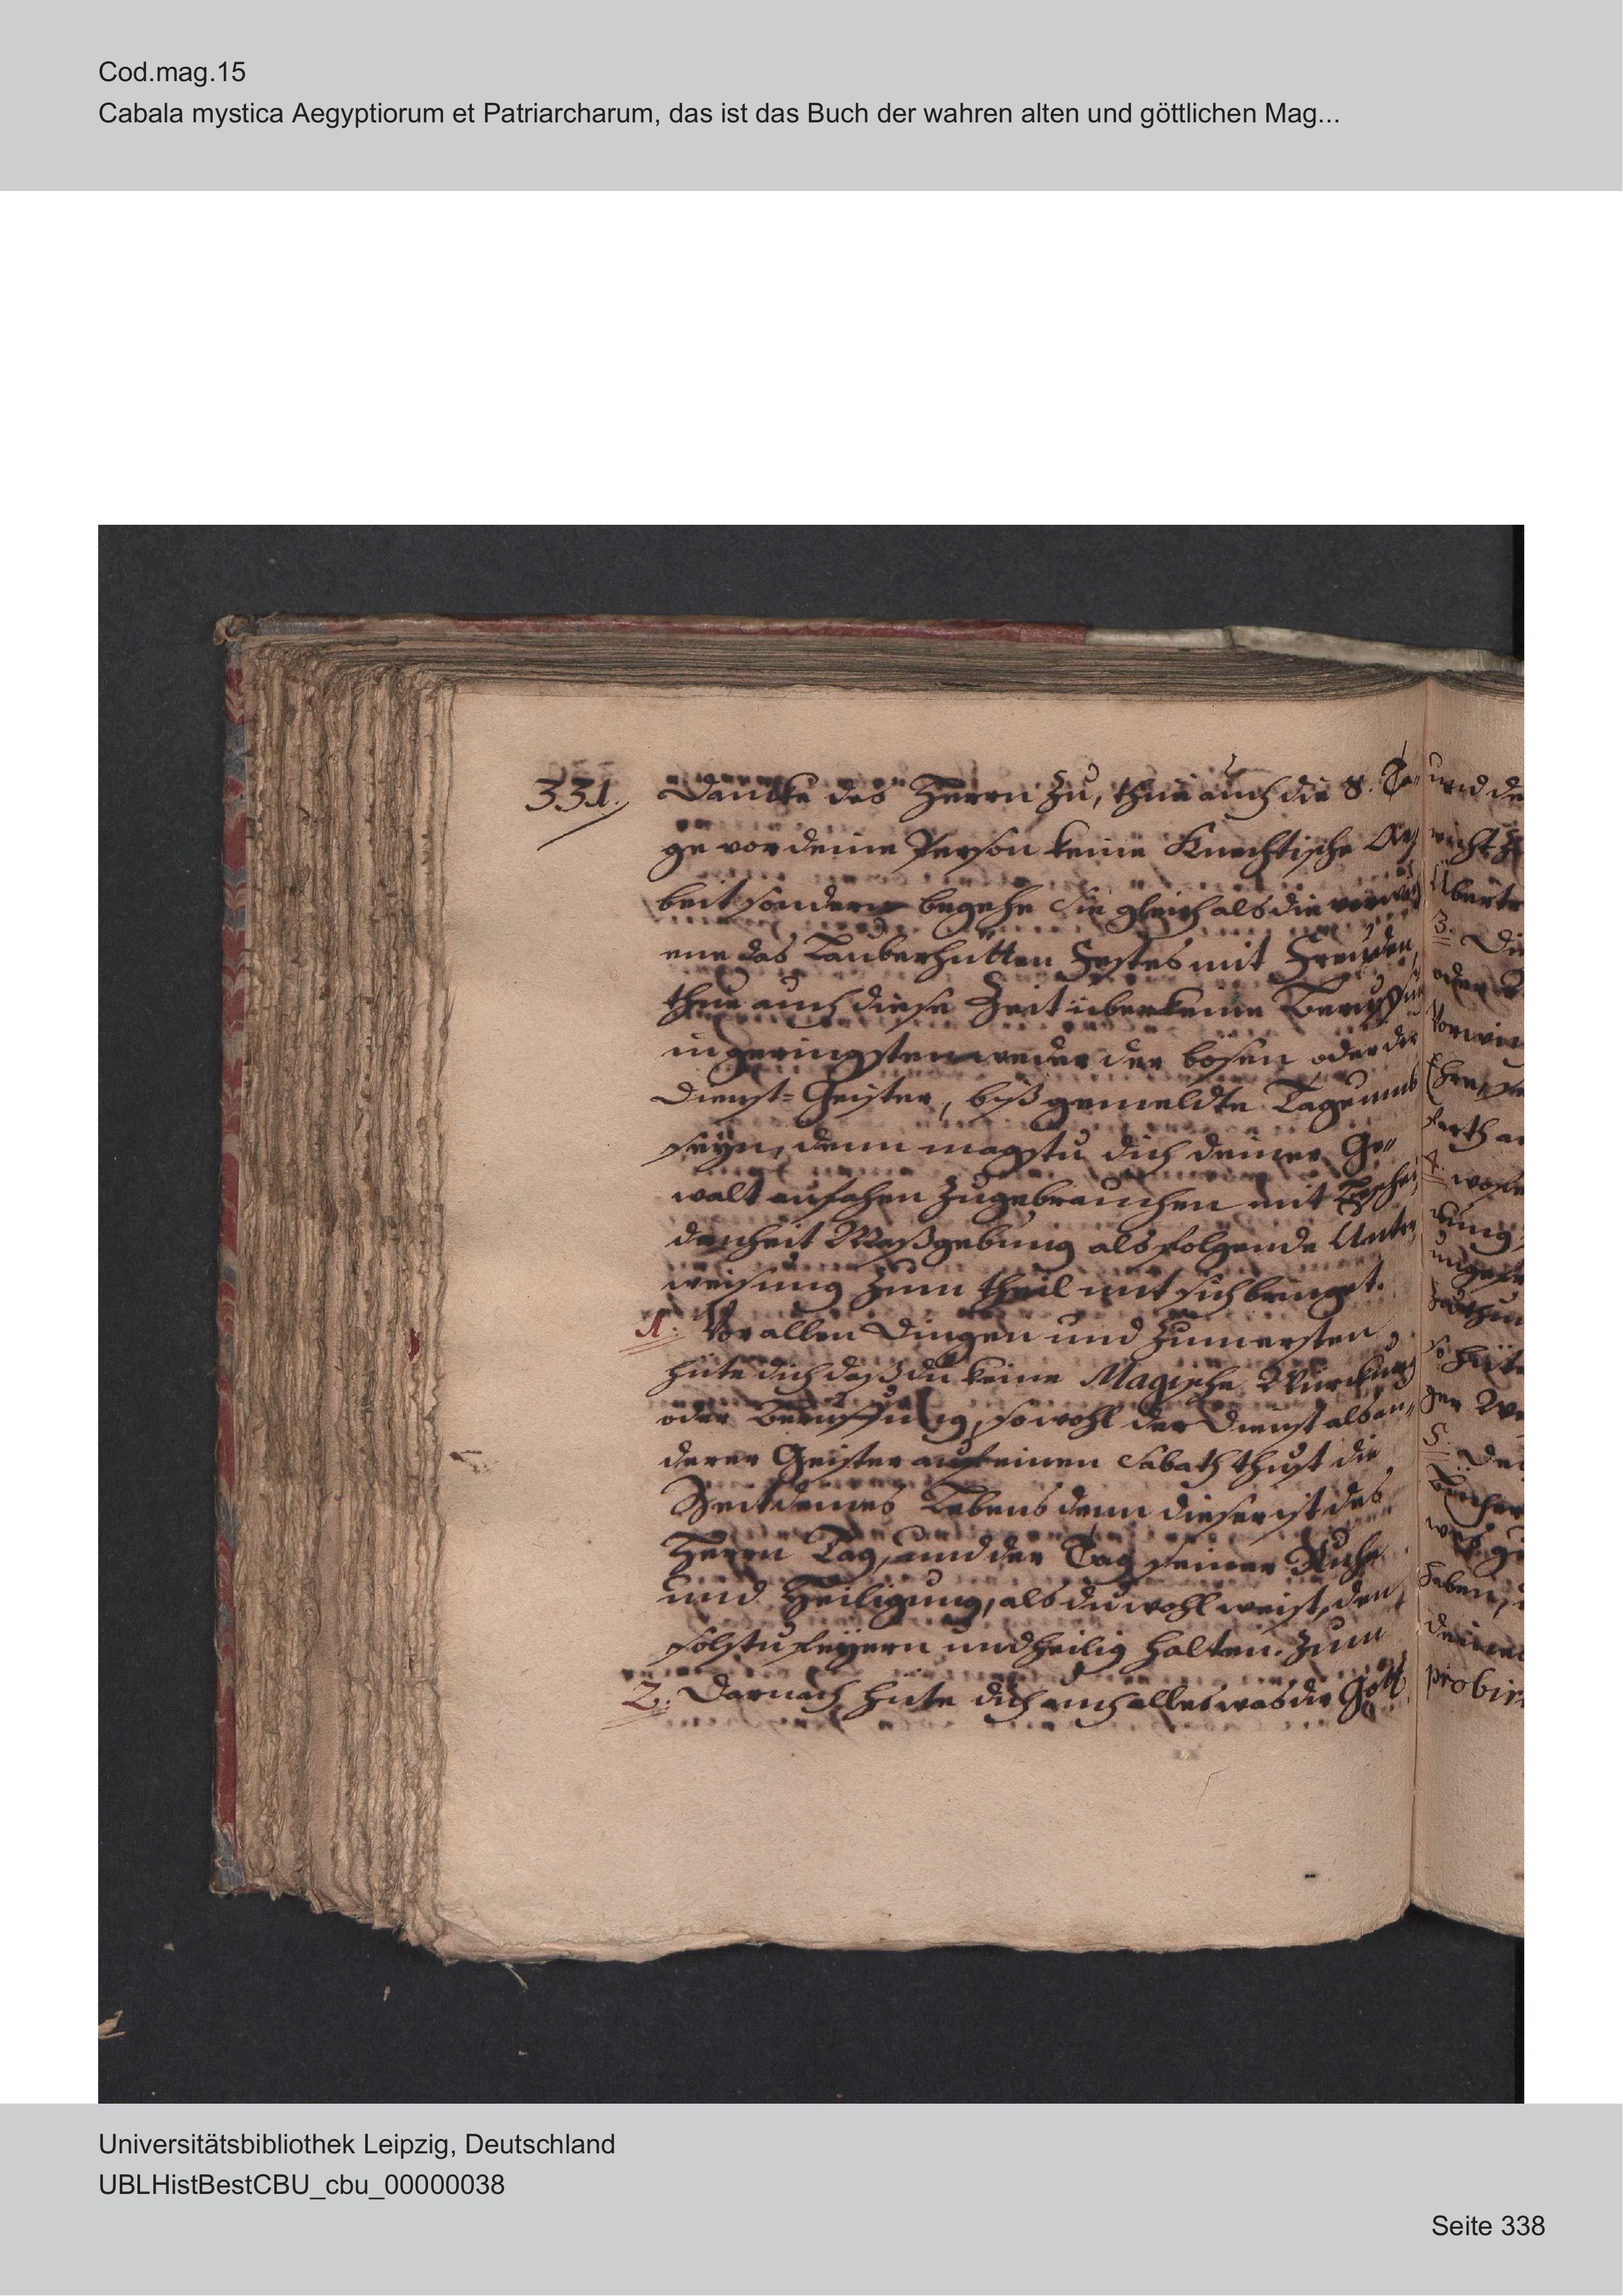 Cod.mag.15
Cabala mystica Aegyptiorum et Patriarcharum, das ist das Buch der wahren alten und göttlichen Mag...
331. Dancke des Herrn zu, thue auch die 8. Ta-
ge vor deine Person keine Knechtische Ar-
beit sondern begehe sie gleich als die
ene das Lauberhütten Festes mit Freuden,
thue auch diese Zeit über keine
in geringsten weder der bösen oder der
Dienst-Geister, biß gemeldte Tage umb
seyn, denn magstu dich deiner Ge-
walt anfahen zugebrauchen mit Beschei-
denheit Maßgebung als folgende Unter-
weisung zum theil mit sich bringet.
1. Vor allen Dingen und zum ersten
hüte dich daß du keine Magische Würckung
oder Beruffung, sowohl der Dienst als an-
derer Geister auf einen Sabath thust die
Zeit deines Lebens denn dieser ist des
Herrn Tag, und der Tag seiner Ruhe
und Heiligung, als du wohl weist, den
solstu feyern und heilig halten. zum
2. Darnach hüte dich auch alles was die Gott
und de
nicht
Übertr
3. Die
oder
farth
4.
dung,
so hüte
5. De
Bücher
haben,
deine
probir
Universitätsbibliothek Leipzig, Deutschland
UBLHistBestCBU_cbu_00000038
Seite 338